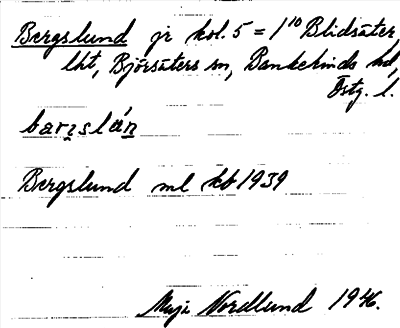 Bergslund jr kol. 5 = 1¹⁰ Blidsäter,
lht, Björsäters sn, Bankekinds hd,
Östg. l.
barıslán
Bergslund ml kb 1939
Maja Nordlund 1946.